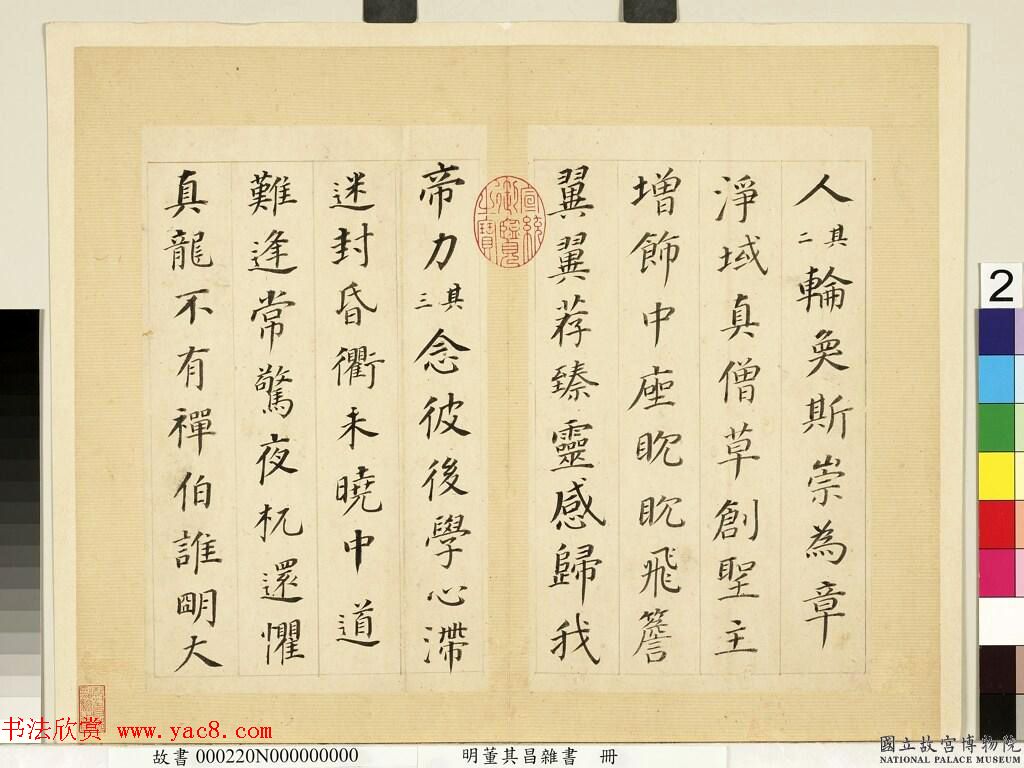 人其二輪奐斯崇為章
淨域真僧草創聖主
增飾中座眈眈飛簷
翼翼荐臻靈感歸我
宣統御覽之寶
帝力其三念彼後學心滯
迷封昏衢未曉中道
難逢常驚夜杌還懼
真龍不有禪伯誰明大
2
书法欣赏 www.yac8.com
故書 000220N000000000 明董其昌雜書 冊
國立故宮博物院
NATIONAL PALACE MUSEUM